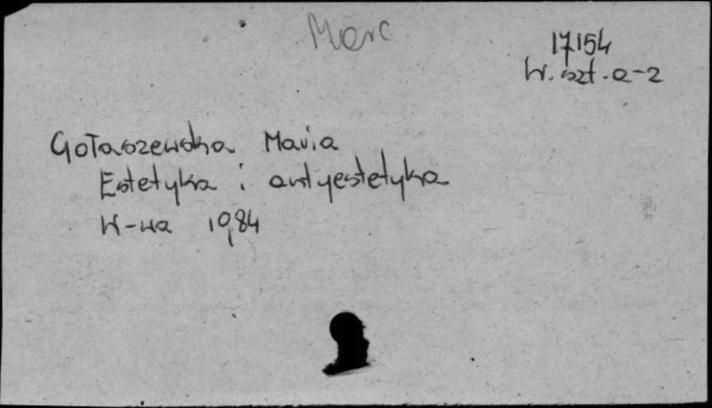 Marc
17154
W. szt. a-z
Gołaszewska Maria
Estetyka i antyestetyka
W-wa 1984